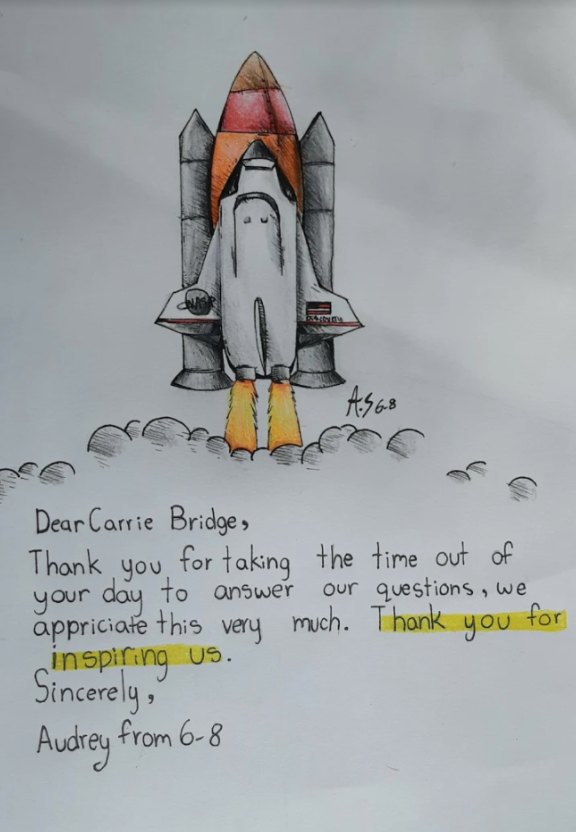 NASA
DISCOVERY
A.S 6-8
Dear Carrie Bridge,
Thank you for taking the time out of
your day to answer our questions, we
appriciate this very much. Thank you for
inspiring us.
Sincerely,
Audrey from 6-8